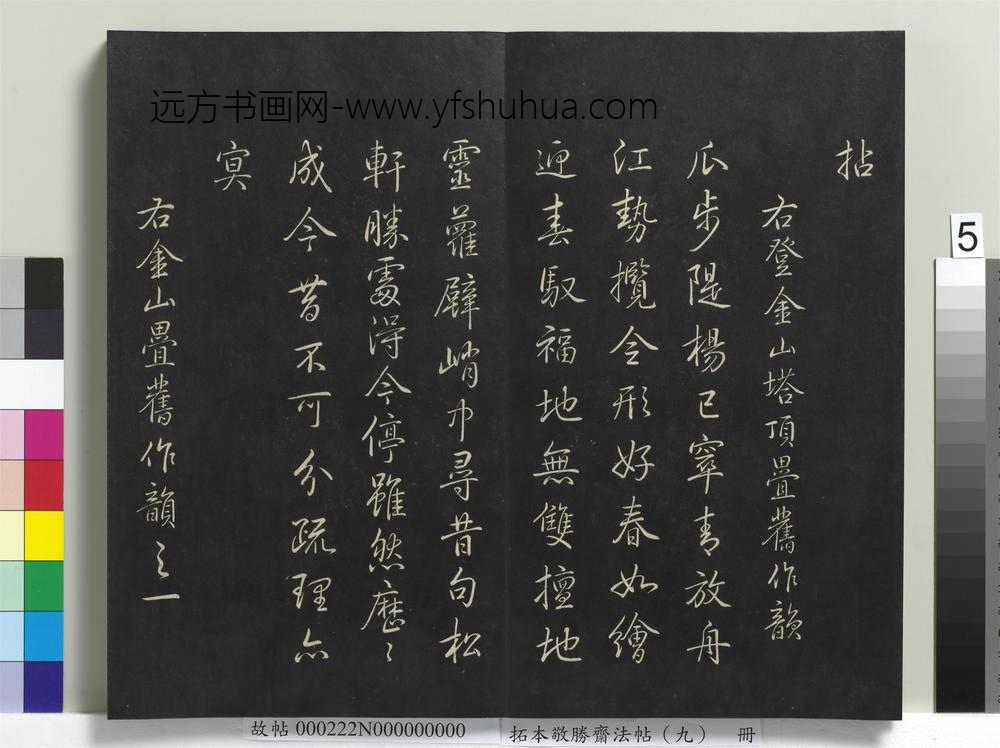 远方书画网-www.yfshuhua.com
拈
右登金山塔頂疊舊作韻
瓜步隄楊已窣青放舟
江勢攬全形好春如繪
迎春馭福地無雙擅地
靈蘿壁峭中尋昔句松
軒勝處得今停雖然歷〻
成今昔不可分疏理亦
寞
右金山疊舊作韻之一
5
故帖 000222N000000000
拓本敬勝齋法帖（九） 冊